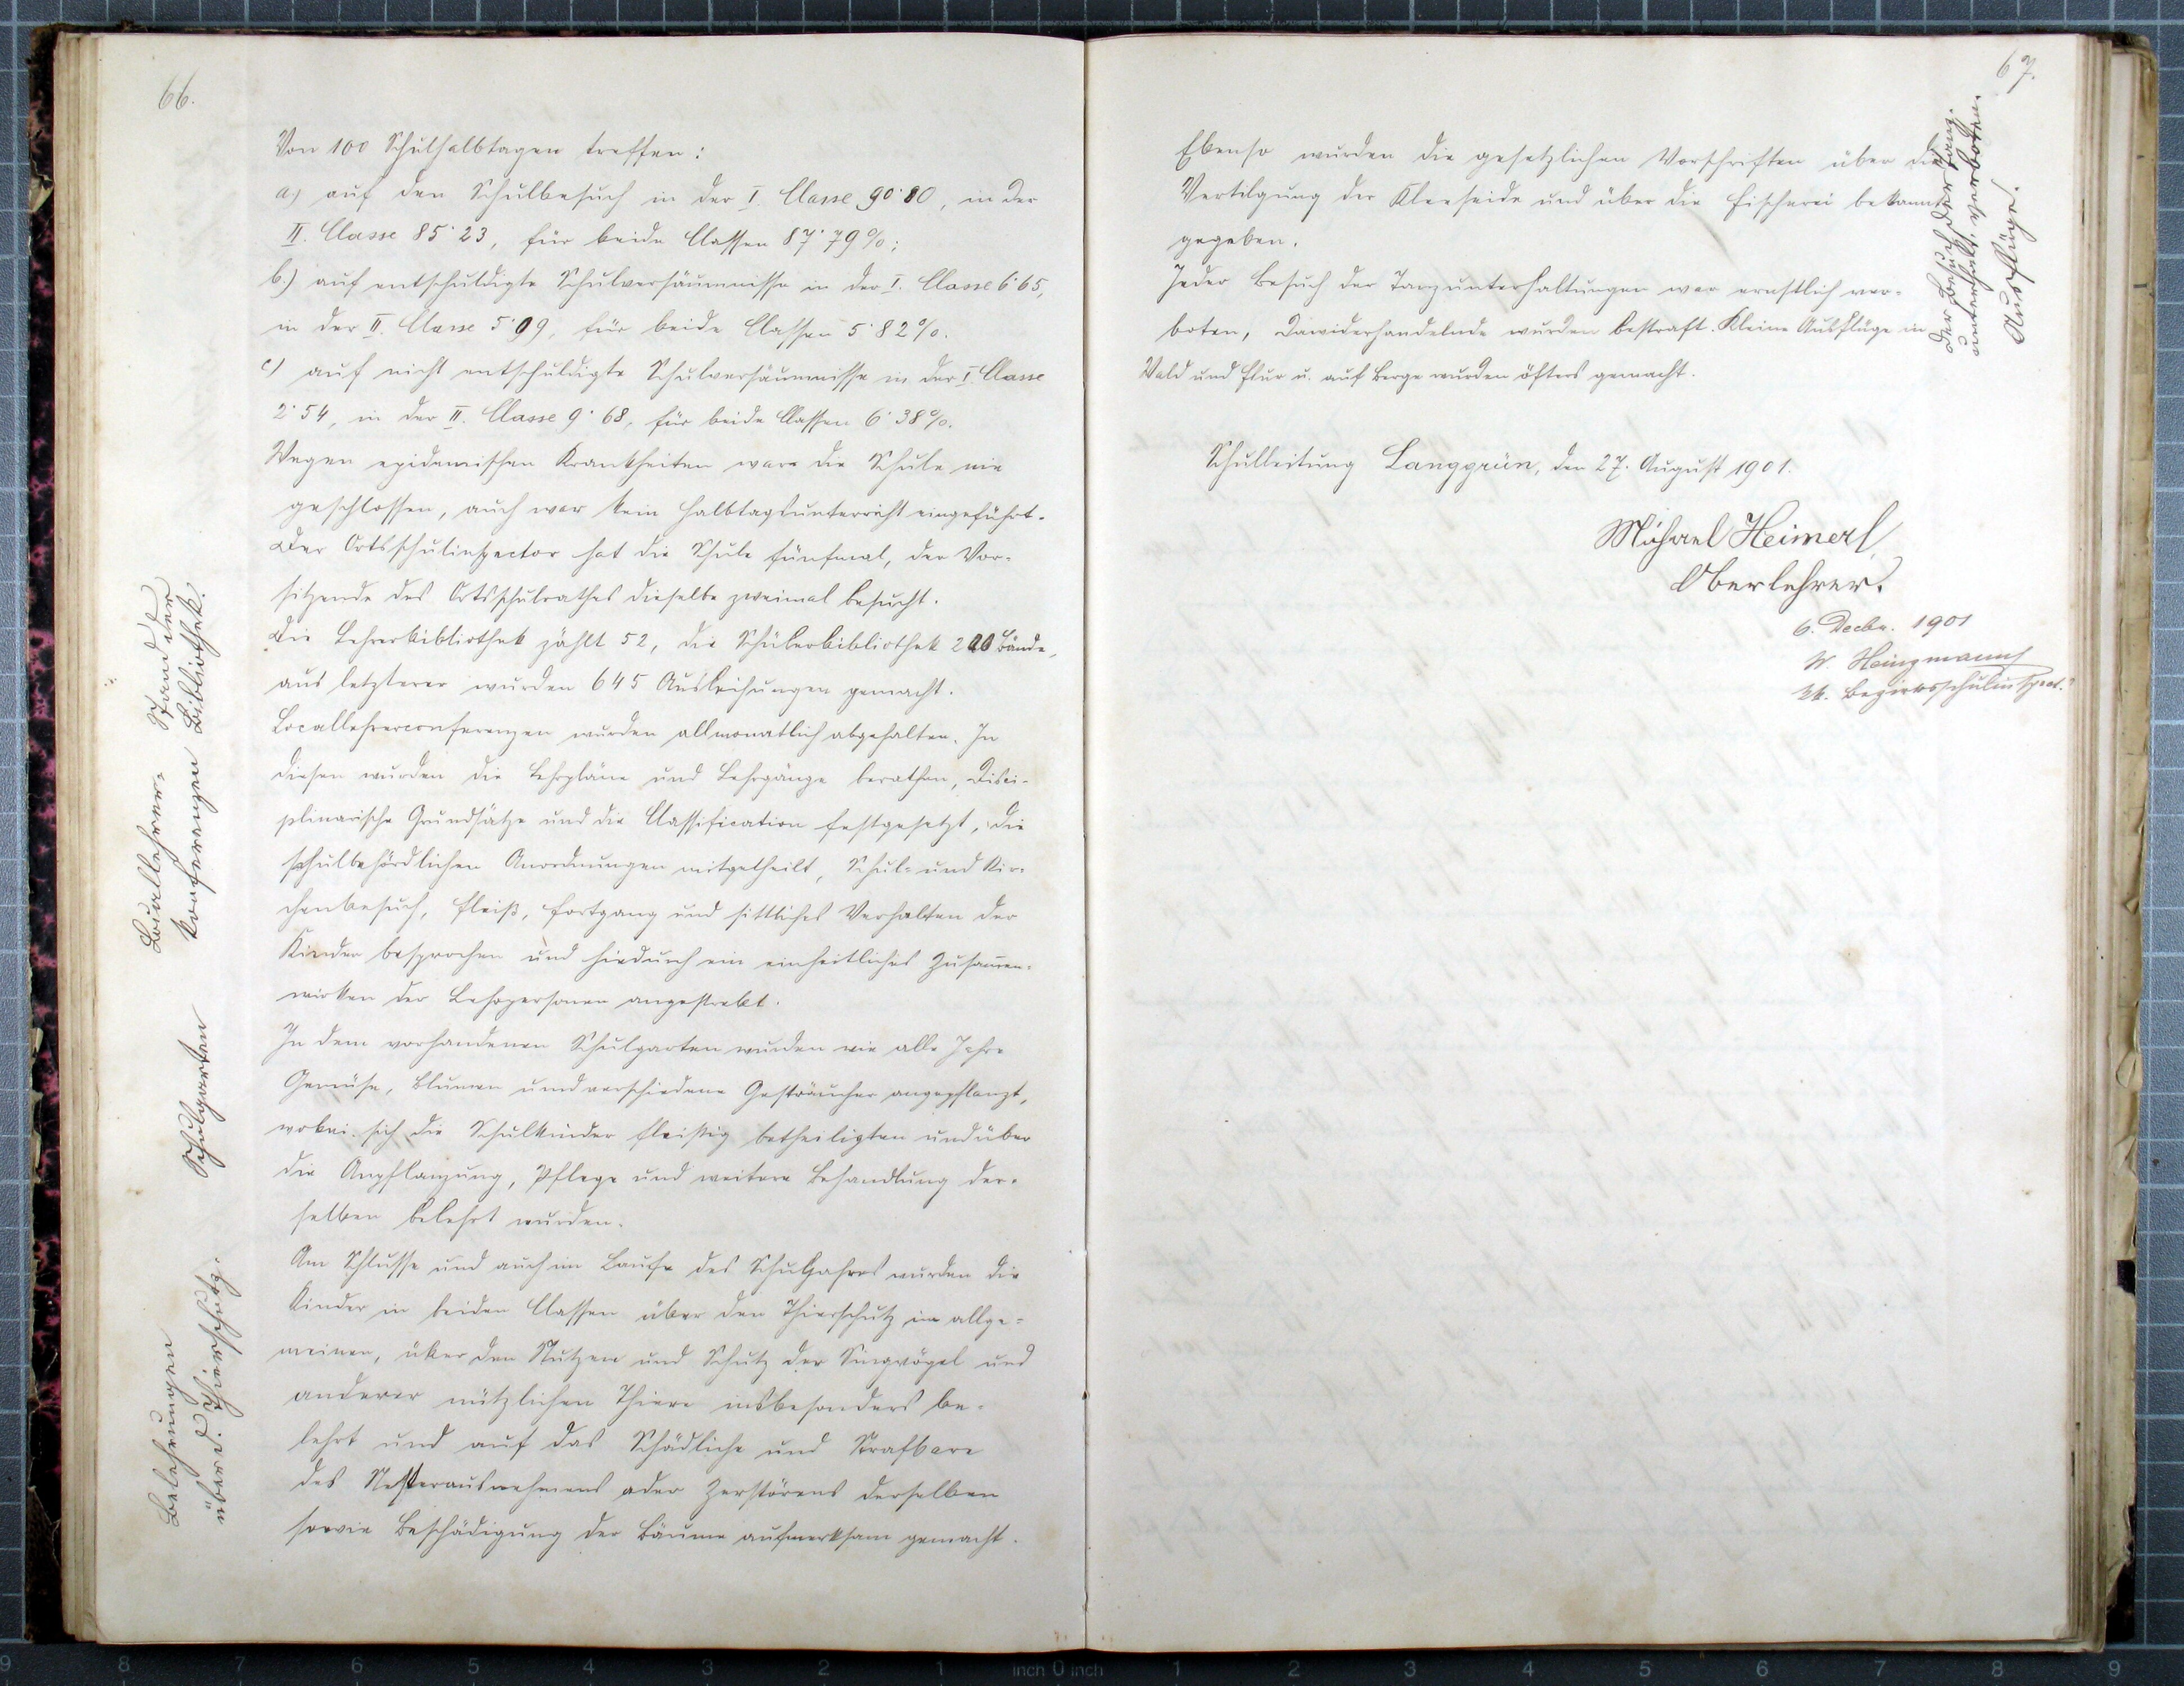 66.
Von 100 Schulhalbtagen treffen:
a) auf den Schulbesuch in der I. Classe 90·80, in der
II. Classe 85·23, für beide Classen 87·79%;
b.) auf entschuldigte Schulversäumnisse in der I. Classe 6·65,
in der II. Classe 5·09, für beide Classen 5·82%.
c) auf nicht entschuldigte Schulversäumnisse in der I. Classe
2·54, in der II. Classe 9·68, für beide Classen 6·38%.
Wegen epidemischen Krankheiten ware die Schule nie
geschlossen, auch war kein Halbtagsunterricht eingeführt.
Der Ortsschulinspector hat die Schule fünfmal, der Vor-
sitzende des Ortsschulrathes dieselbe zweimal besucht.
Die Lehrerbibliothek zählt 52, die Schülerbibliothek 200 Bände,
aus letzterer wurden 645 Ausleihungen gemacht.
Locallehrerconferenzen wurden allmonatlich abgehalten. In
diesen wurden die Lehrpläne und Lehrgänge berathen, Disci-
plinarische Grundsätze und die Classification festgesetzt, die
schulbehördlichen Anordnungen mitgetheilt, Schul- und Kir-
chenbesuch, Fleiß, Fortgang und sittliches Verhalten der
Kinder besprochen und hiedurch ein einheitliches Zusam̄en-
wirken der Lehrpersonen angestrebt.
In dem vorhandenen Schulgarten wurden wie alle Jahre
Gemüse, Blumen und verschiedene Gesträucher angepflanzt,
wobei sich die Schulkinder fleißig betheiligten und über
die Anpflanzung, Pflege und weitere Behandlung der-
selben belehrt wurden.
Am Schlusse und auch im Laufe des Schuljahres wurden die
Kinder in beiden Classen über den Thierschutz im allge-
meinen, über den Nutzen und Schutz der Singvögel und
anderer nützlichen Thiere insbesonders be-
lehrt und auf das Schädliche und Strafbare
des Nesterausnehmens oder Zerstörens derselben
sowie Beschädigung der Bäume aufmerksam gemacht.
Stand der
Bibliothek.
Locallehrer-
konferenzen
Schulgarten
Belehrungen
über d. Thierschutz.
67.
Ebenso wurden die gesetzlichen Vorschriften über die
Vertilgung der Kleeseide und über die Fischerei bekannt
gegeben.
Jeder Besuch der Tanzunterhaltungen war ernstlich ver-
boten, Dawiderhandelnde wurden bestraft. Kleine Ausflüge in
Wald und Flur u. auf Berge wurden öfters gemacht.
Der Besuch der Tanz-
unterhalt. verboten.
Ausflüge.
Schulleitung Langgrün, den 27. August 1901.
Michael Heimerl,
Oberlehrer.
6. Decbr. 1901
W. Heinzmann
kk. Bezirksschulinspect.